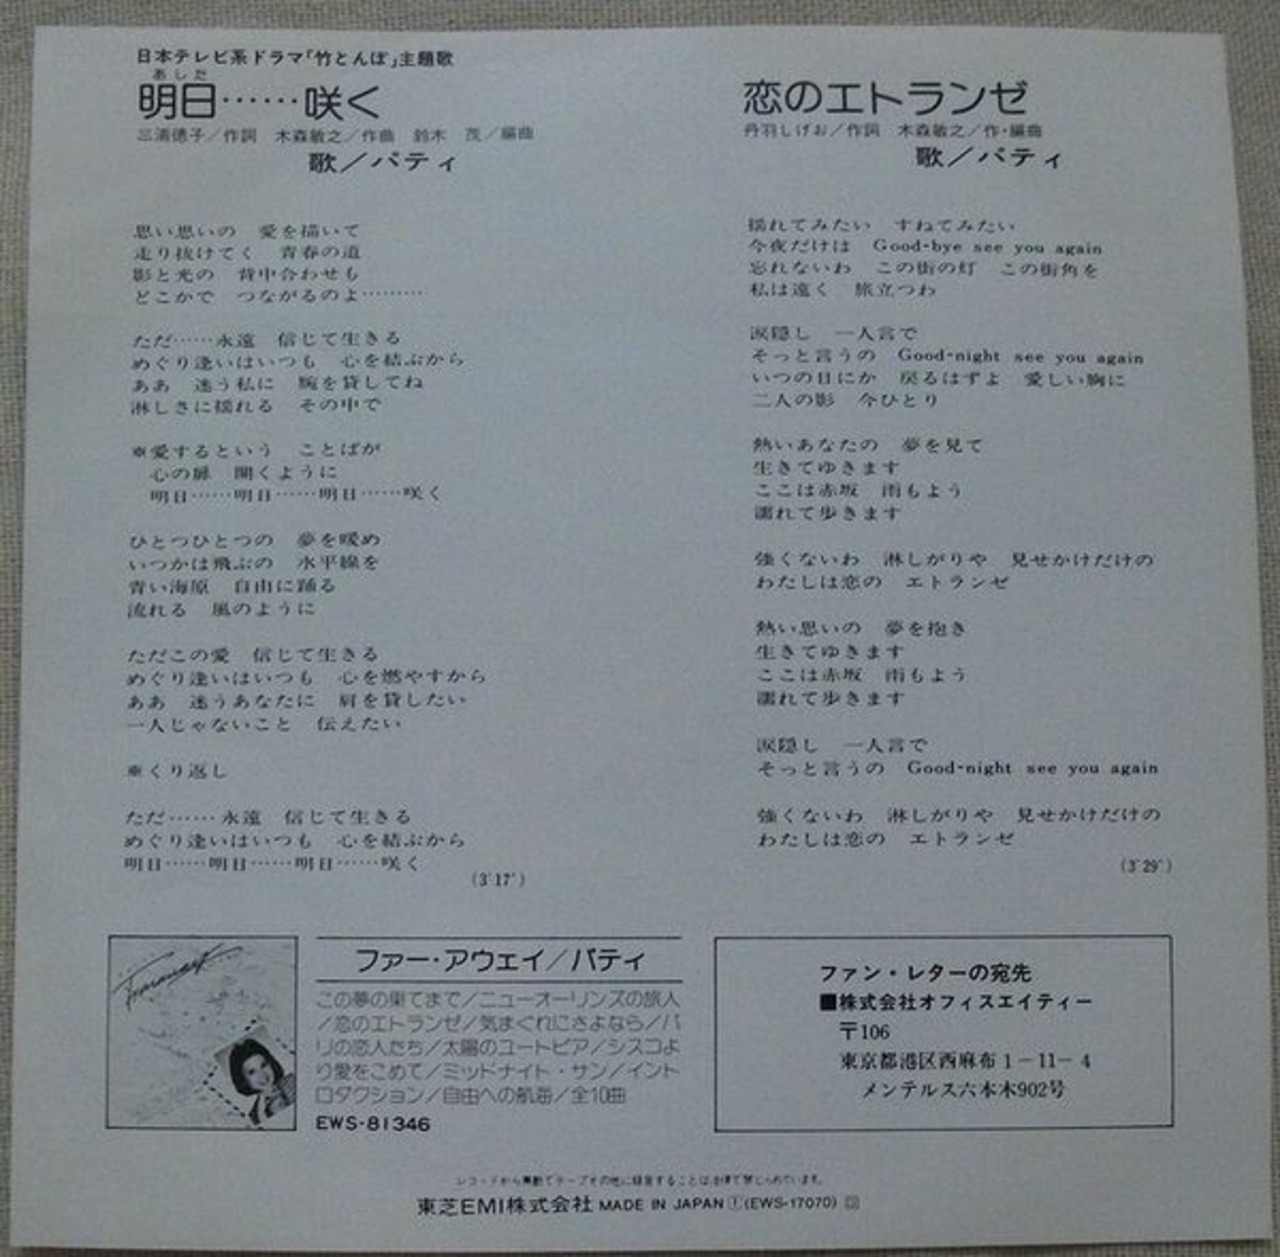 日本テレビ系ドラマ「竹とんぼ」主題歌
あした
明日……咲く
三浦徳子／作詞　木森敏之／作曲　鈴木　茂／編曲
歌／パティ
思い思いの　愛を描いて
走り抜けてく　青春の道
影と光の　背中合わせも
どこかで　つながるのよ………
ただ……永遠　信じて生きる
めぐり逢いはいつも　心を結ぶから
ああ　迷う私に　腕を貸してね
淋しさに揺れる　その中で
※愛するという　ことばが
心の扉　開くように
明日……明日……明日……咲く
ひとつひとつの　夢を暖め
いつかは飛ぶの　水平線を
青い海原　自由に踊る
流れる　風のように
ただこの愛　信じて生きる
めぐり逢いはいつも　心を燃やすから
ああ　迷うあなたに　肩を貸したい
一人じゃないこと　伝えたい
※くり返し
ただ……永遠　信じて生きる
めぐり逢いはいつも　心を結ぶから
明日……明日……明日……咲く
(3'17")
恋のエトランゼ
丹羽しげお／作詞　木森敏之／作・編曲
歌／パティ
揺れてみたい　すねてみたい
今夜だけは　Good-bye see you again
忘れないわ　この街の灯　この街角を
私は遠く　旅立つわ
涙隠し　一人言で
そっと言うの　Good-night see you again
いつの日にか　戻るはずよ　愛しい胸に
二人の影　今ひとり
熱いあなたの　夢を見て
生きてゆきます
ここは赤坂　雨もよう
濡れて歩きます
強くないわ　淋しがりや　見せかけだけの
わたしは恋の　エトランゼ
熱い思いの　夢を抱き
生きてゆきます
ここは赤坂　雨もよう
濡れて歩きます
涙隠し　一人言で
そっと言うの　Good-night see you again
強くないわ　淋しがりや　見せかけだけの
わたしは恋の　エトランゼ
(3'29")
Faraway
ファー・アウェイ／パティ
この夢の果てまで／ニューオーリンズの旅人
／恋のエトランゼ／気まぐれにさよなら／パ
リの恋人たち／太陽のユートピア／シスコよ
り愛をこめて／ミッドナイト・サン／イント
ロダクション／自由への航海／全10曲
EWS-81346
ファン・レターの宛先
■株式会社オフィスエイティー
〒106
東京都港区西麻布1-11-4
メンテルス六本木902号
レコードから無断でテープその他に録音することは法律で禁じられています。
東芝EMI株式会社 MADE IN JAPAN Ⓣ(EWS-17070)